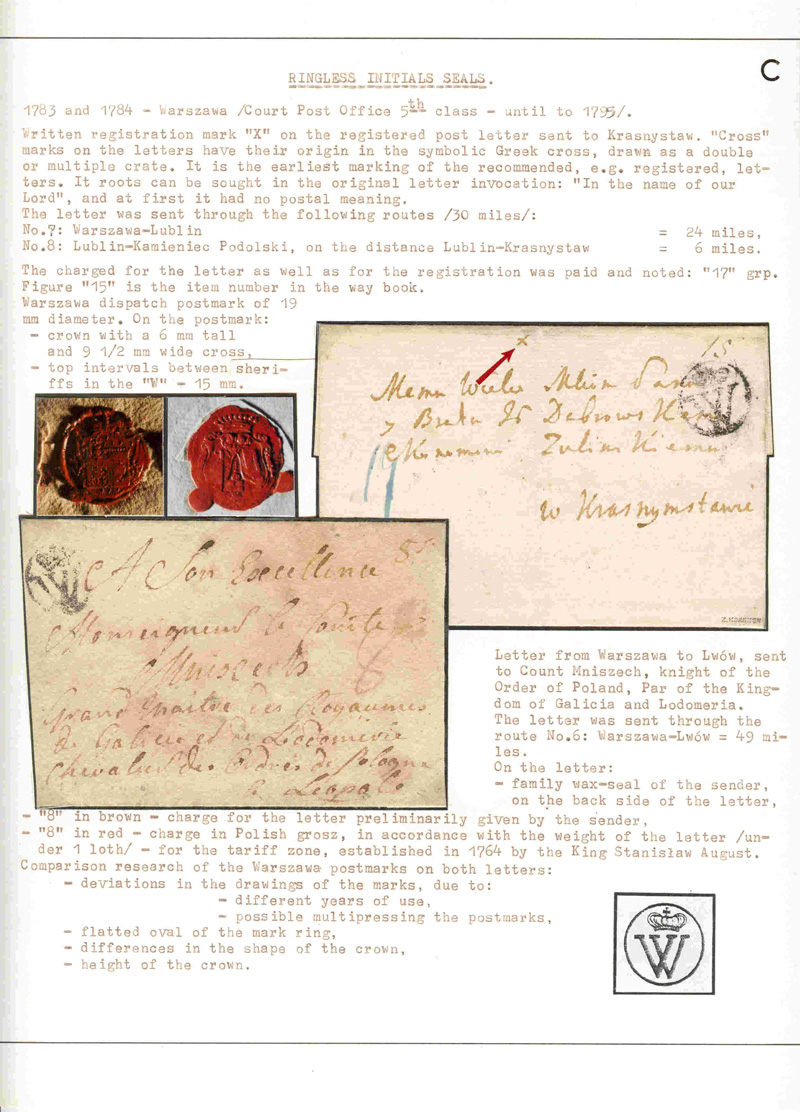 C
RINGLESS INITIALS SEALS.
1783 and 1784 - Warszawa /Court Post Office 5th class - until to 1795/.
Written registration mark "X" on the registered post letter sent to Krasnystaw. "Cross"
marks on the letters have their origin in the symbolic Greek cross, drawn as a double
or multiple crate. It is the earliest marking of the recommended, e.g. registered, let-
ters. It roots can be sought in the original letter invocation: "In the name of our
Lord", and at first it had no postal meaning.
The letter was sent through the following routes /30 miles/:
No.7: Warszawa-Lublin = 24 miles,
No.8: Lublin-Kamieniec Podolski, on the distance Lublin-Krasnystaw = 6 miles.
The charged for the letter as well as for the registration was paid and noted: "17" grp.
Figure "15" is the item number in the way book.
Warszawa dispatch postmark of 19
mm diameter. On the postmark:
- crown with a 6 mm tall
and 9 1/2 mm wide cross,
- top intervals between sheri-
ffs in the "W" - 15 mm.
x
15
W
17
w Krasnymstawie
W
A Son Excellence
8
Monseigneur le Comte
Mniszech
8
Grand Maitre des Royaumes
de Galicie et de Lodomerie
Chevalier des Ordres de Pologne
a Leopol
Letter from Warszawa to Lwów, sent
to Count Mniszech, knight of the
Order of Poland, Par of the King-
dom of Galicia and Lodomeria.
The letter was sent through the
route No.6: Warszawa-Lwów = 49 mi-
les.
On the letter:
- family wax-seal of the sender,
on the back side of the letter,
- "8" in brown - charge for the letter preliminarily given by the sender,
- "8" in red - charge in Polish grosz, in accordance with the weight of the letter /un-
der 1 loth/ - for the tariff zone, established in 1764 by the King Stanisław August.
Comparison research of the Warszawa postmarks on both letters:
- deviations in the drawings of the marks, due to:
- different years of use,
- possible multipressing the postmarks,
- flatted oval of the mark ring,
- differences in the shape of the crown,
- height of the crown.
W